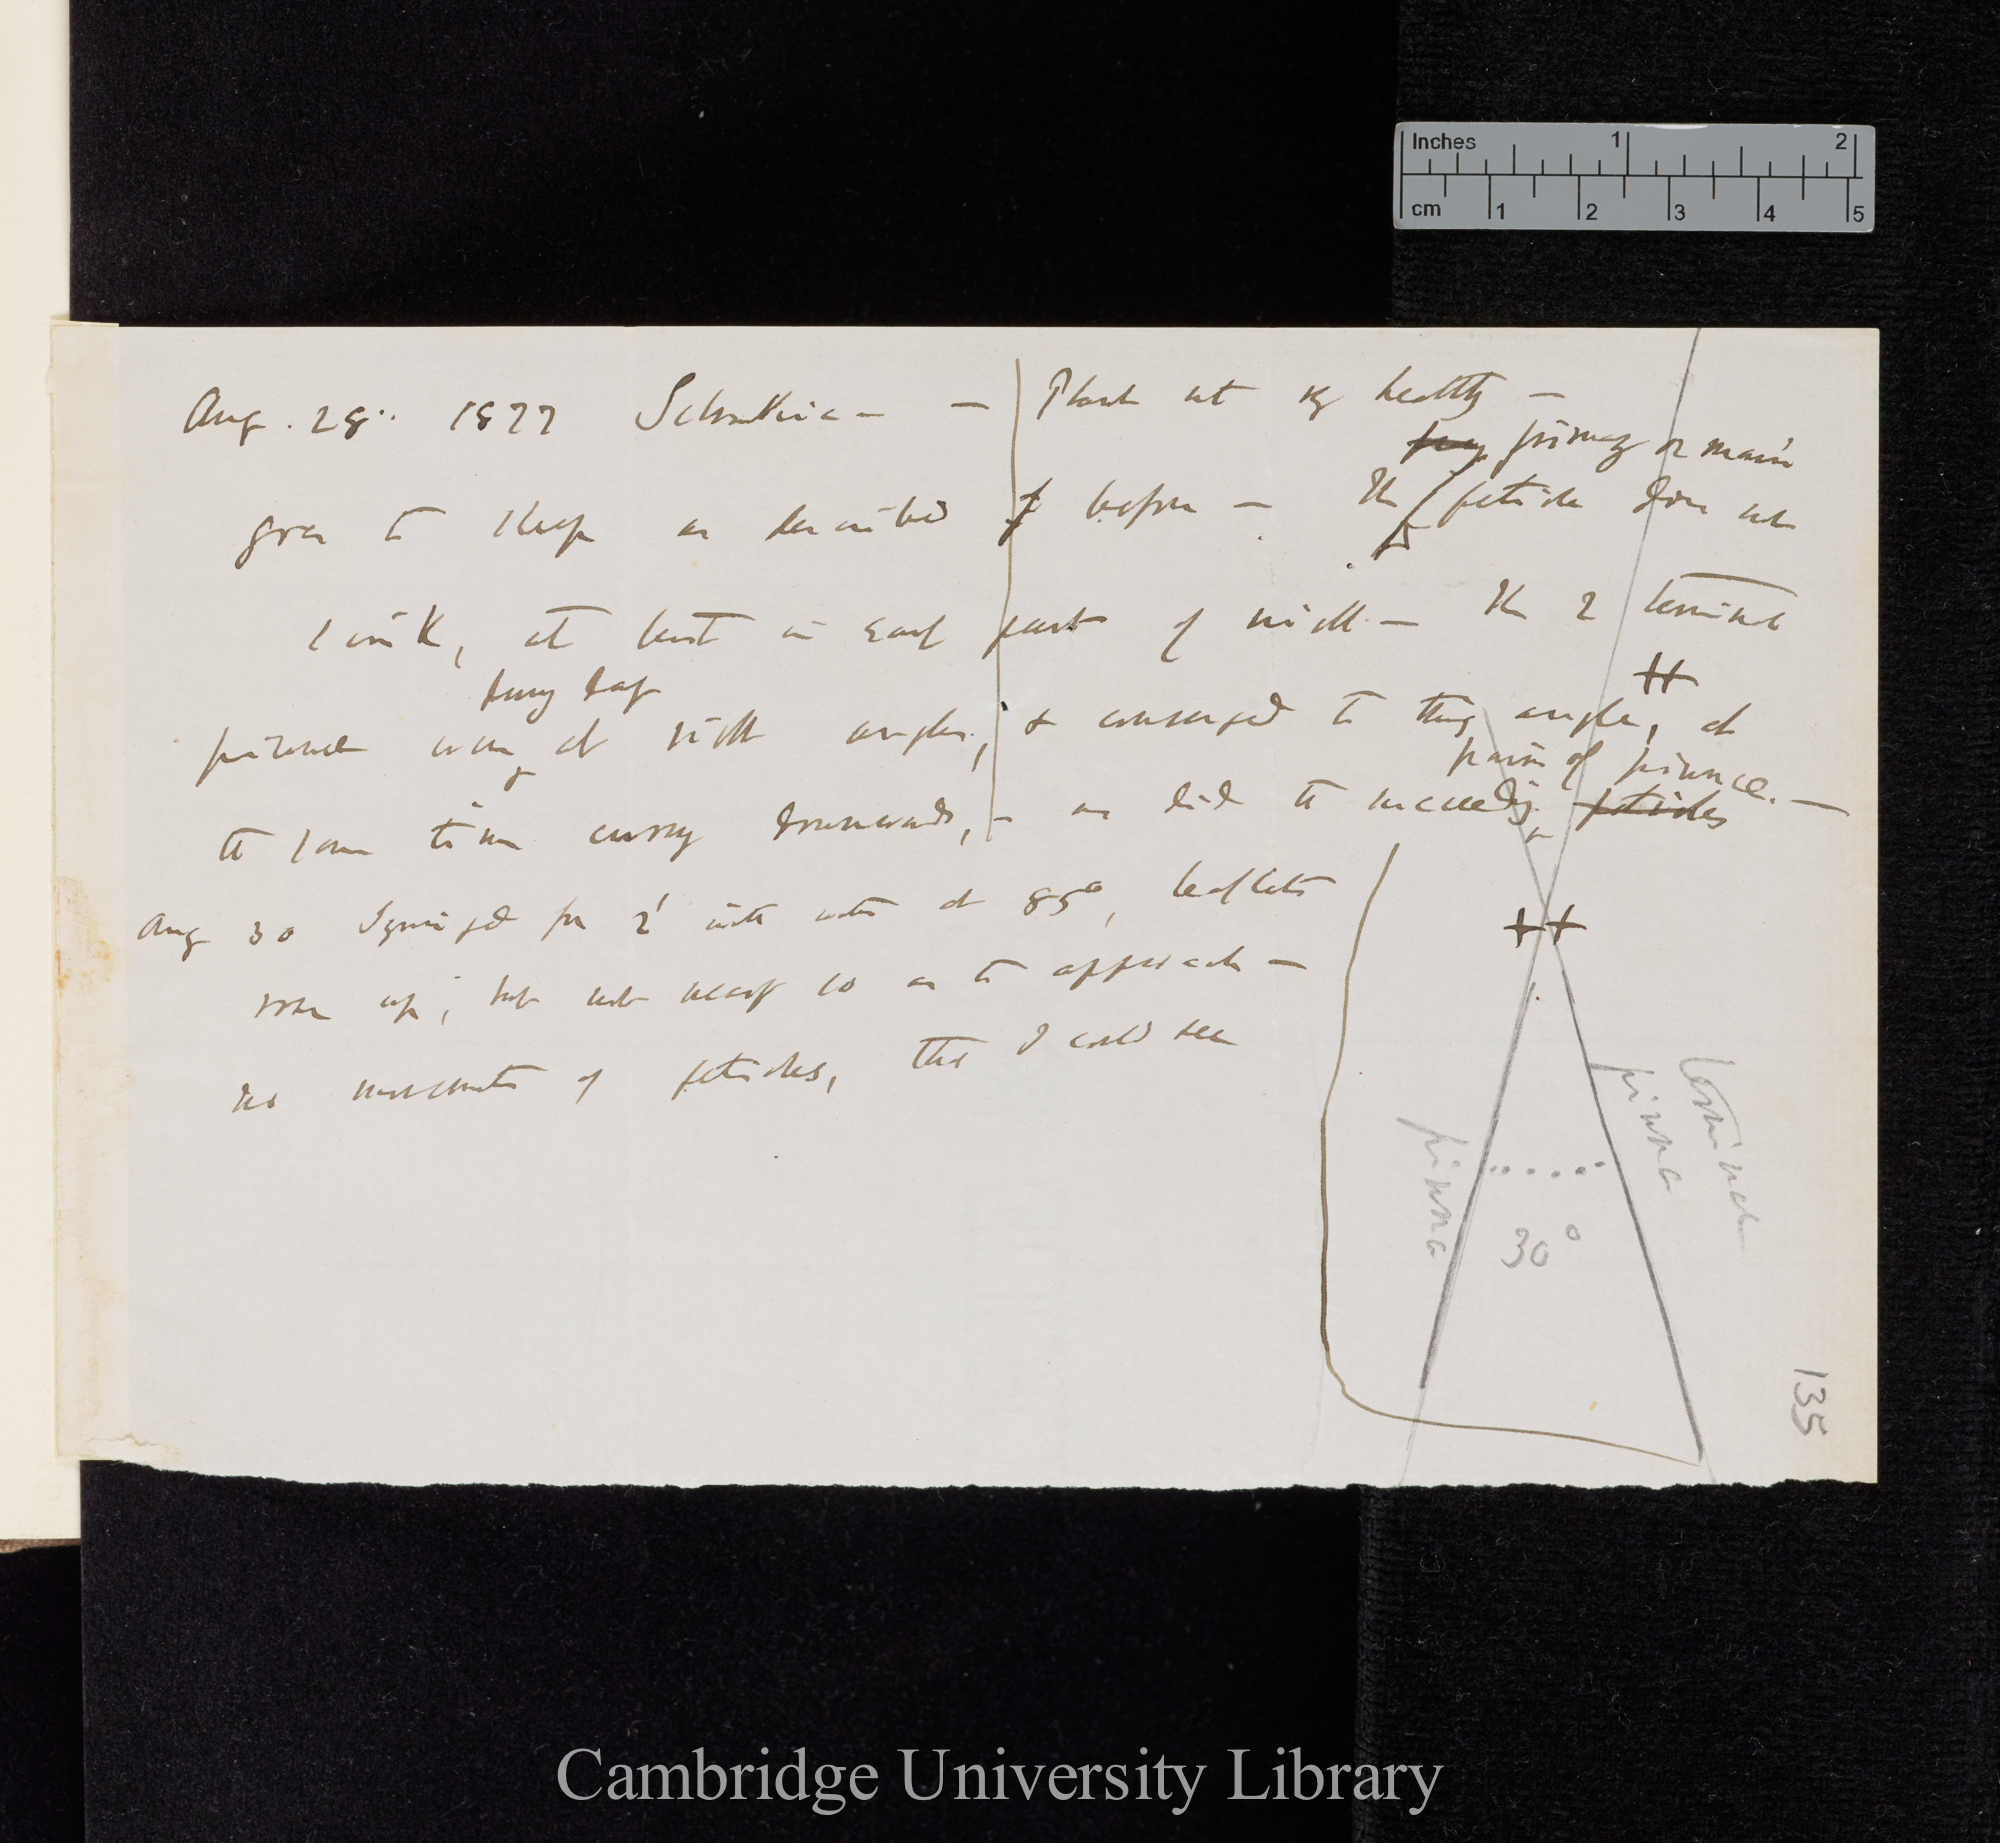 Inches 1 2
cm 1 2 3 4 5
Aug. 28.. 1877 Schrankia — — Plant not vy healthy —
primary or main
goes to sleep as described before — The petiole does not
sink, at least in early part of night — The 2 terminal
during day
pinnae were at right angles, & converged to this angle, at
++
pair of pinnae. —
the same time curving downwards, — as did the succeeding petioles
Aug 30 Syringed for 2' with water at 85°, leaflets
rose up, but not nearly so as to approach —
no movements of petioles, that I could see
++
terminal
pinna
pinna
30°
135
Cambridge University Library